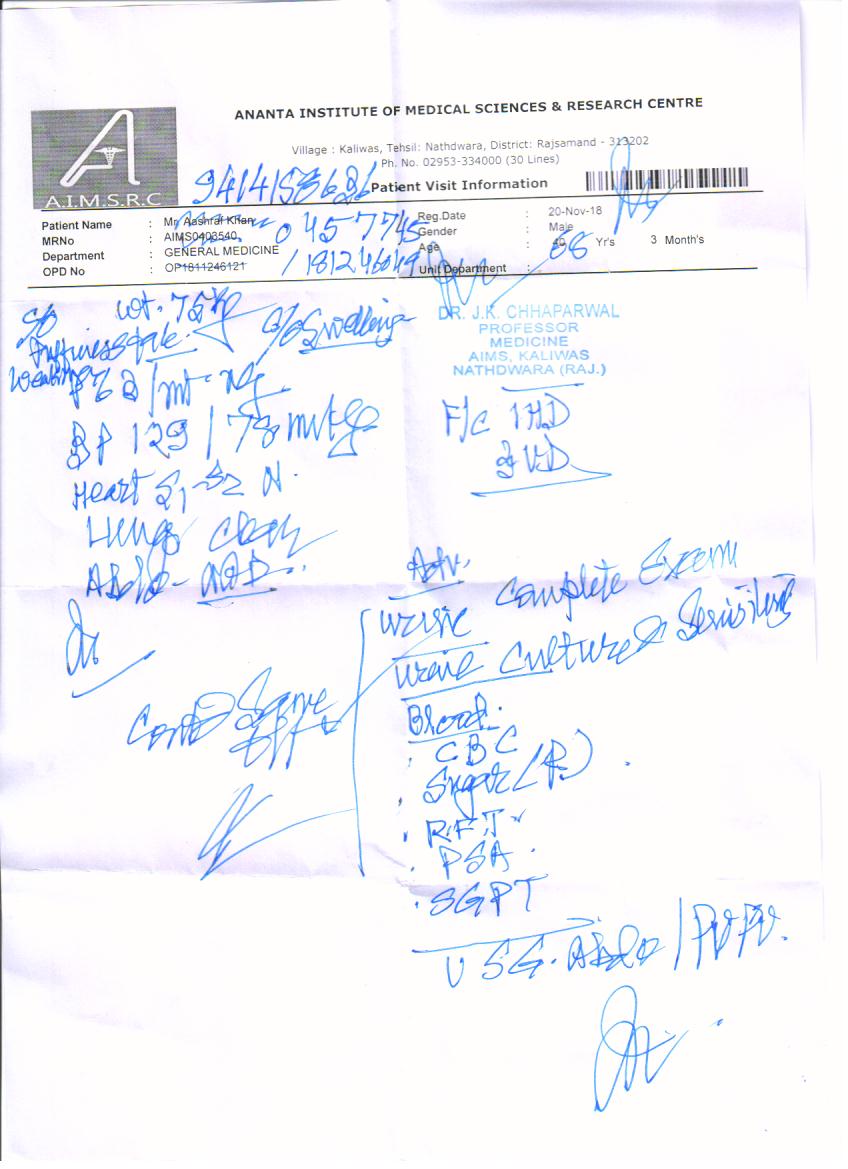 ANANTA INSTITUTE OF MEDICAL SCIENCES & RESEARCH CENTRE
A.I.M.S.R.C
Village : Kaliwas, Tehsil: Nathdwara, District: Rajsamand - 313202
Ph. No. 02953-334000 (30 Lines)
Patient Visit Information
Patient Name : Mr. Aashraf Khan
Reg.Date : 20-Nov-18
MRNo : AIMS0403540
Gender : Male
Department : GENERAL MEDICINE
Age : 40 68 Yr's 3 Month's
OPD No : OP1811246121
Unit Department :
C/o wt. 75 kg C/o Swelling
Puffiness face
Weakness
BP 129 / 78 mmHg
Heart S1-S2 N.
Lungs Clear
Abdo- NAD
DR. J.K. CHHAPARWAL
PROFESSOR
MEDICINE
AIMS, KALIWAS
NATHDWARA (RAJ.)
F/c IHD
Adv.
Urine Complete Exam
Urine Culture & Sensitivity
Blood.
. CBC
. Sugar (R)
. RFT
. PSA
. SGPT
Contd Same
USG. Abdo /